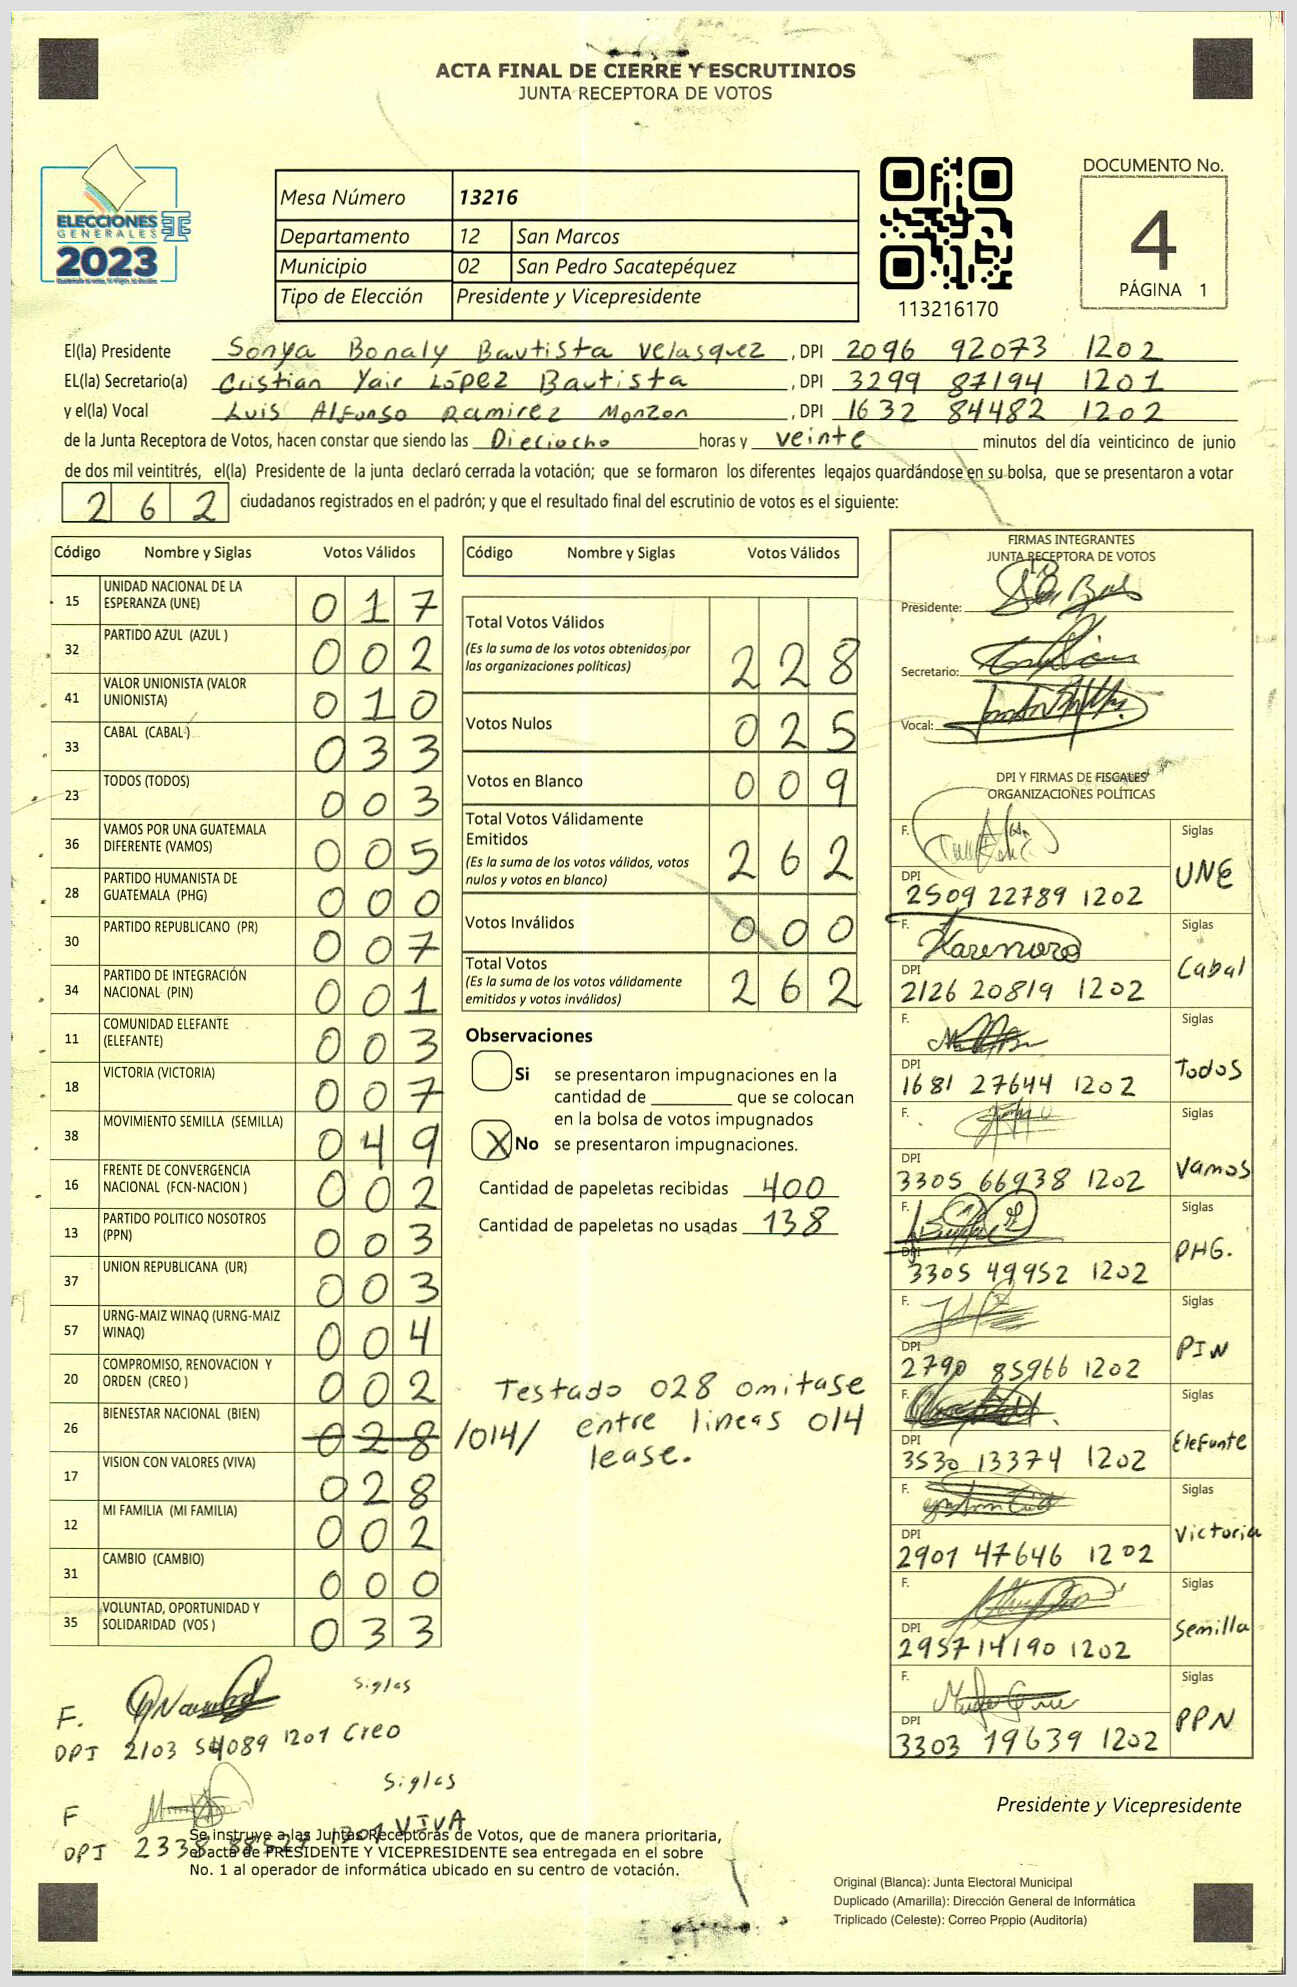 ACTA FINAL DE CIERRE Y ESCRUTINIOS
JUNTA RECEPTORA DE VOTOS
ELECCIONES
GENERALES
2023
Mesa Número 13216
Departamento 12 San Marcos
Municipio 02 San Pedro Sacatepéquez
Tipo de Elección Presidente y Vicepresidente
113216170
DOCUMENTO No.
4
PÁGINA 1
El(la) Presidente Sonya Bonaly Bautista Velasquez , DPI 2096 92073 1202
EL(la) Secretario(a) Cristian Yair López Bautista , DPI 3299 87194 1201
y el(la) Vocal Luis Alfonso Ramirez Monzon , DPI 1632 84482 1202
de la Junta Receptora de Votos, hacen constar que siendo las Dieciocho horas y veinte minutos del día veinticinco de junio
de dos mil veintitrés, el(la) Presidente de la junta declaró cerrada la votación; que se formaron los diferentes legajos guardándose en su bolsa, que se presentaron a votar
262 ciudadanos registrados en el padrón; y que el resultado final del escrutinio de votos es el siguiente:
Código Nombre y Siglas Votos Válidos
15 UNIDAD NACIONAL DE LA ESPERANZA (UNE) 017
32 PARTIDO AZUL (AZUL ) 002
41 VALOR UNIONISTA (VALOR UNIONISTA) 010
33 CABAL (CABAL ) 033
23 TODOS (TODOS) 003
36 VAMOS POR UNA GUATEMALA DIFERENTE (VAMOS) 005
28 PARTIDO HUMANISTA DE GUATEMALA (PHG) 000
30 PARTIDO REPUBLICANO (PR) 007
34 PARTIDO DE INTEGRACIÓN NACIONAL (PIN) 001
11 COMUNIDAD ELEFANTE (ELEFANTE) 003
18 VICTORIA (VICTORIA) 007
38 MOVIMIENTO SEMILLA (SEMILLA) 049
16 FRENTE DE CONVERGENCIA NACIONAL (FCN-NACION ) 002
13 PARTIDO POLITICO NOSOTROS (PPN) 003
37 UNION REPUBLICANA (UR) 003
57 URNG-MAIZ WINAQ (URNG-MAIZ WINAQ) 004
20 COMPROMISO, RENOVACION Y ORDEN (CREO ) 002
26 BIENESTAR NACIONAL (BIEN) 028 /014/
17 VISION CON VALORES (VIVA) 028
12 MI FAMILIA (MI FAMILIA) 002
31 CAMBIO (CAMBIO) 000
35 VOLUNTAD, OPORTUNIDAD Y SOLIDARIDAD (VOS ) 033
Código Nombre y Siglas Votos Válidos
Total Votos Válidos
(Es la suma de los votos obtenidos por
las organizaciones políticas) 228
Votos Nulos 025
Votos en Blanco 009
Total Votos Válidamente
Emitidos
(Es la suma de los votos válidos, votos
nulos y votos en blanco) 262
Votos Inválidos 000
Total Votos
(Es la suma de los votos válidamente
emitidos y votos inválidos) 262
Observaciones
Si se presentaron impugnaciones en la
cantidad de ________ que se colocan
en la bolsa de votos impugnados
X No se presentaron impugnaciones.
Cantidad de papeletas recibidas 400
Cantidad de papeletas no usadas 138
Testado 028 omitase
entre lineas 014
lease.
FIRMAS INTEGRANTES
JUNTA RECEPTORA DE VOTOS
Presidente:
Secretario:
Vocal:
DPI Y FIRMAS DE FISCALES
ORGANIZACIONES POLÍTICAS
F. Siglas
DPI UNE
2509 22789 1202
F. Siglas
DPI Cabal
2126 20819 1202
F. Siglas
DPI Todos
1681 27644 1202
F. Siglas
DPI Vamos
3305 66938 1202
F. Siglas
DPI PHG.
3305 49952 1202
F. Siglas
DPI PIN
2790 85966 1202
F. Siglas
DPI Elefante
3530 13374 1202
F. Siglas
DPI Victoria
2901 47646 1202
F. Siglas
DPI Semilla
2957 14190 1202
F. Siglas
DPI PPN
3303 19639 1202
F. Siglas
DPI 2103 54089 1201 Creo
F Siglas
DPI 2338 1301 VIVA
Se instruye a las Juntas Receptoras de Votos, que de manera prioritaria,
el acta de PRESIDENTE Y VICEPRESIDENTE sea entregada en el sobre
No. 1 al operador de informática ubicado en su centro de votación.
Presidente y Vicepresidente
Original (Blanca): Junta Electoral Municipal
Duplicado (Amarilla): Dirección General de Informática
Triplicado (Celeste): Correo Propio (Auditoría)